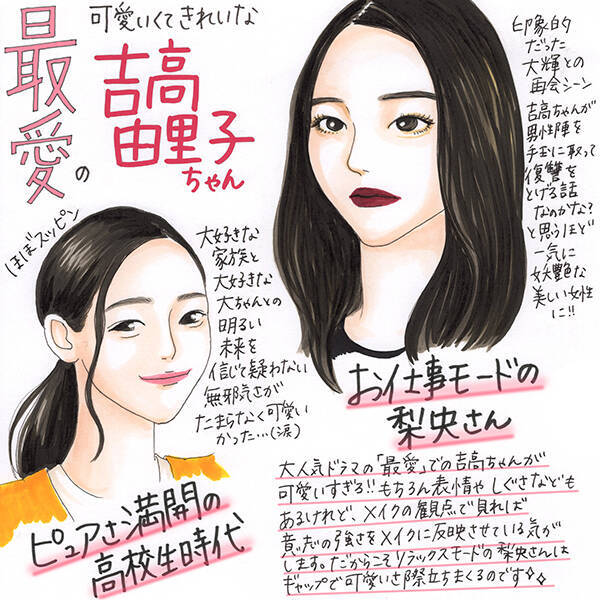 最愛の
可愛いくてきれいな
吉高
由里子
ちゃん
印象的
だった
大輝との
再会シーン
吉高ちゃんが
男性陣を
手玉に取って
復讐を
とげる話
なのかな?
と思うほど
一気に
妖艶な
美しい女性
に!!
ほぼスッピン
大好きな
家族と
大好きな
大ちゃんとの
明るい
未来を
信じて疑わない
無邪気さが
たまらなく可愛い
かった…(涙)
お仕事モードの
梨央さん
ピュアさ満開の
高校生時代
大人気ドラマの「最愛」での吉高ちゃんが
可愛いすぎる!!もちろん表情やしぐさなども
あるけれど、メイクの観点で見れば
意志の強さをメイクに反映させている気が
します。だからこそリラックスモードの梨央さんは
ギャップで可愛いさ際立ちまくるのです